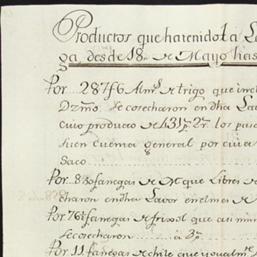 Productos que ha renido la La
ga, desde 18 de Mayo has
Por 287f6 Alms de trigo que inclu
Dzmo. Se cosecharon en dha La
cuio producto de 431p 2r. los pus
cuenta general por cuia
Saco
Por 83 fanegas de M que Libres de
charon en dha Lavor en el mes de
Por 76 fanegas de frixol que asi mism
se cosecharon a 3p
Por 11 fanegas de chile que ygualm